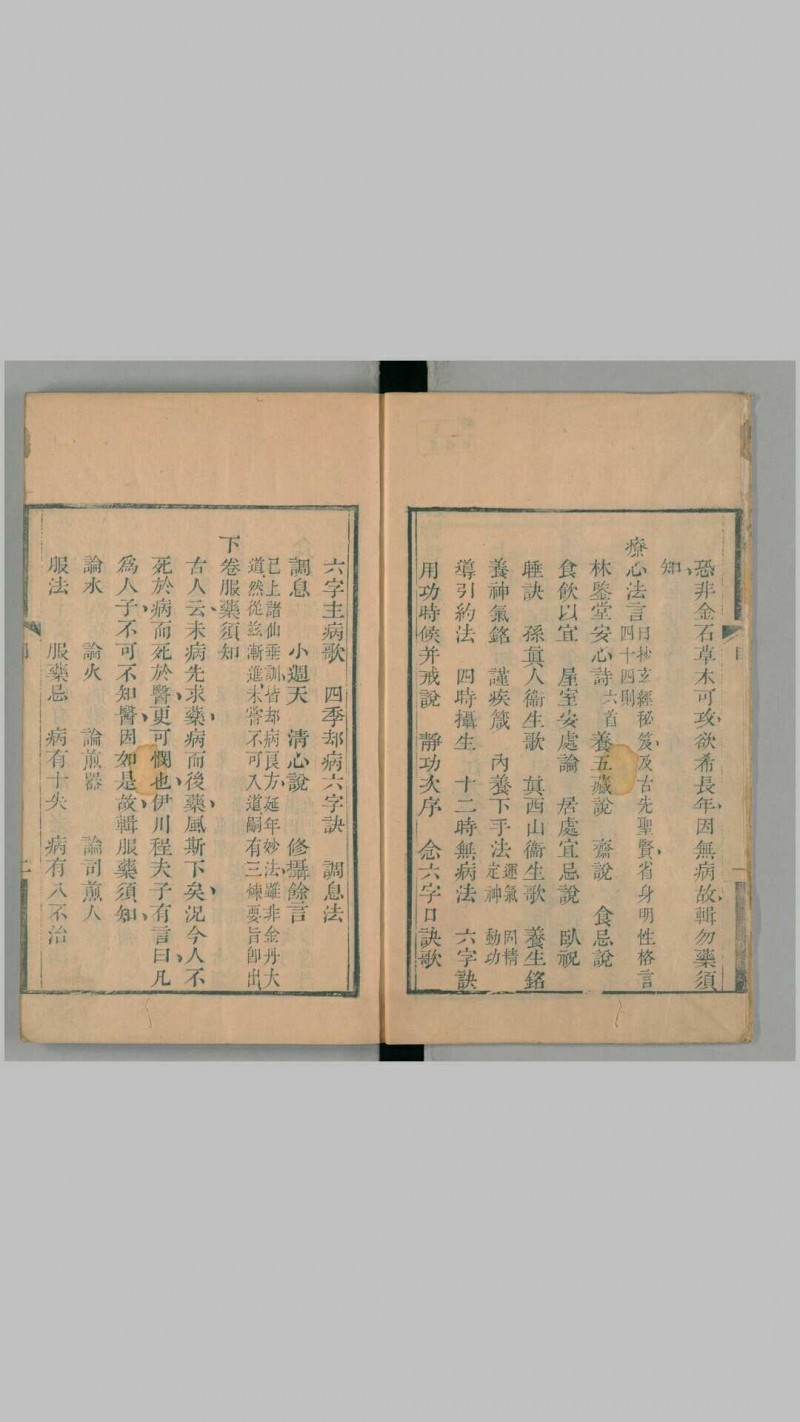 恐非金石草木可攻欲希長年因無病故輯勿藥須
知
療心法言日抄玄經秘笈及古先聖賢省身明性格言四十四則
林鑒堂安心詩六首 養五臟說 齋說 食忌說
食飲以宜 屋室安處論 居處宜忌說 臥祝
睡訣 孫眞人衞生歌 眞西山衞生歌 養生銘
養神氣銘 謹疾箴 內養下手法運氣 固精定神 動功
導引約法 四時攝生 十二時無病法 六字訣
用功時候并戒說 靜功次序 念六字口訣歌
六字主病歌 四季却病六字訣 調息法
調息 小週天 清心說 修攝餘言
已上諸仙垂訓皆却病良方延年妙法雖非金丹大
道然從玆漸進未嘗不可入道嗣有三煉要旨卽出
下卷服藥須知
古人云未病先求藥病而後藥風斯下矣況今人不
死於病而死於醫更可憫也伊川程夫子有言曰凡
為人子不可不知醫因如是故輯服藥須知
論水 論火 論煎器 論司煎人
服法 服藥忌 病有十失 病有八不治